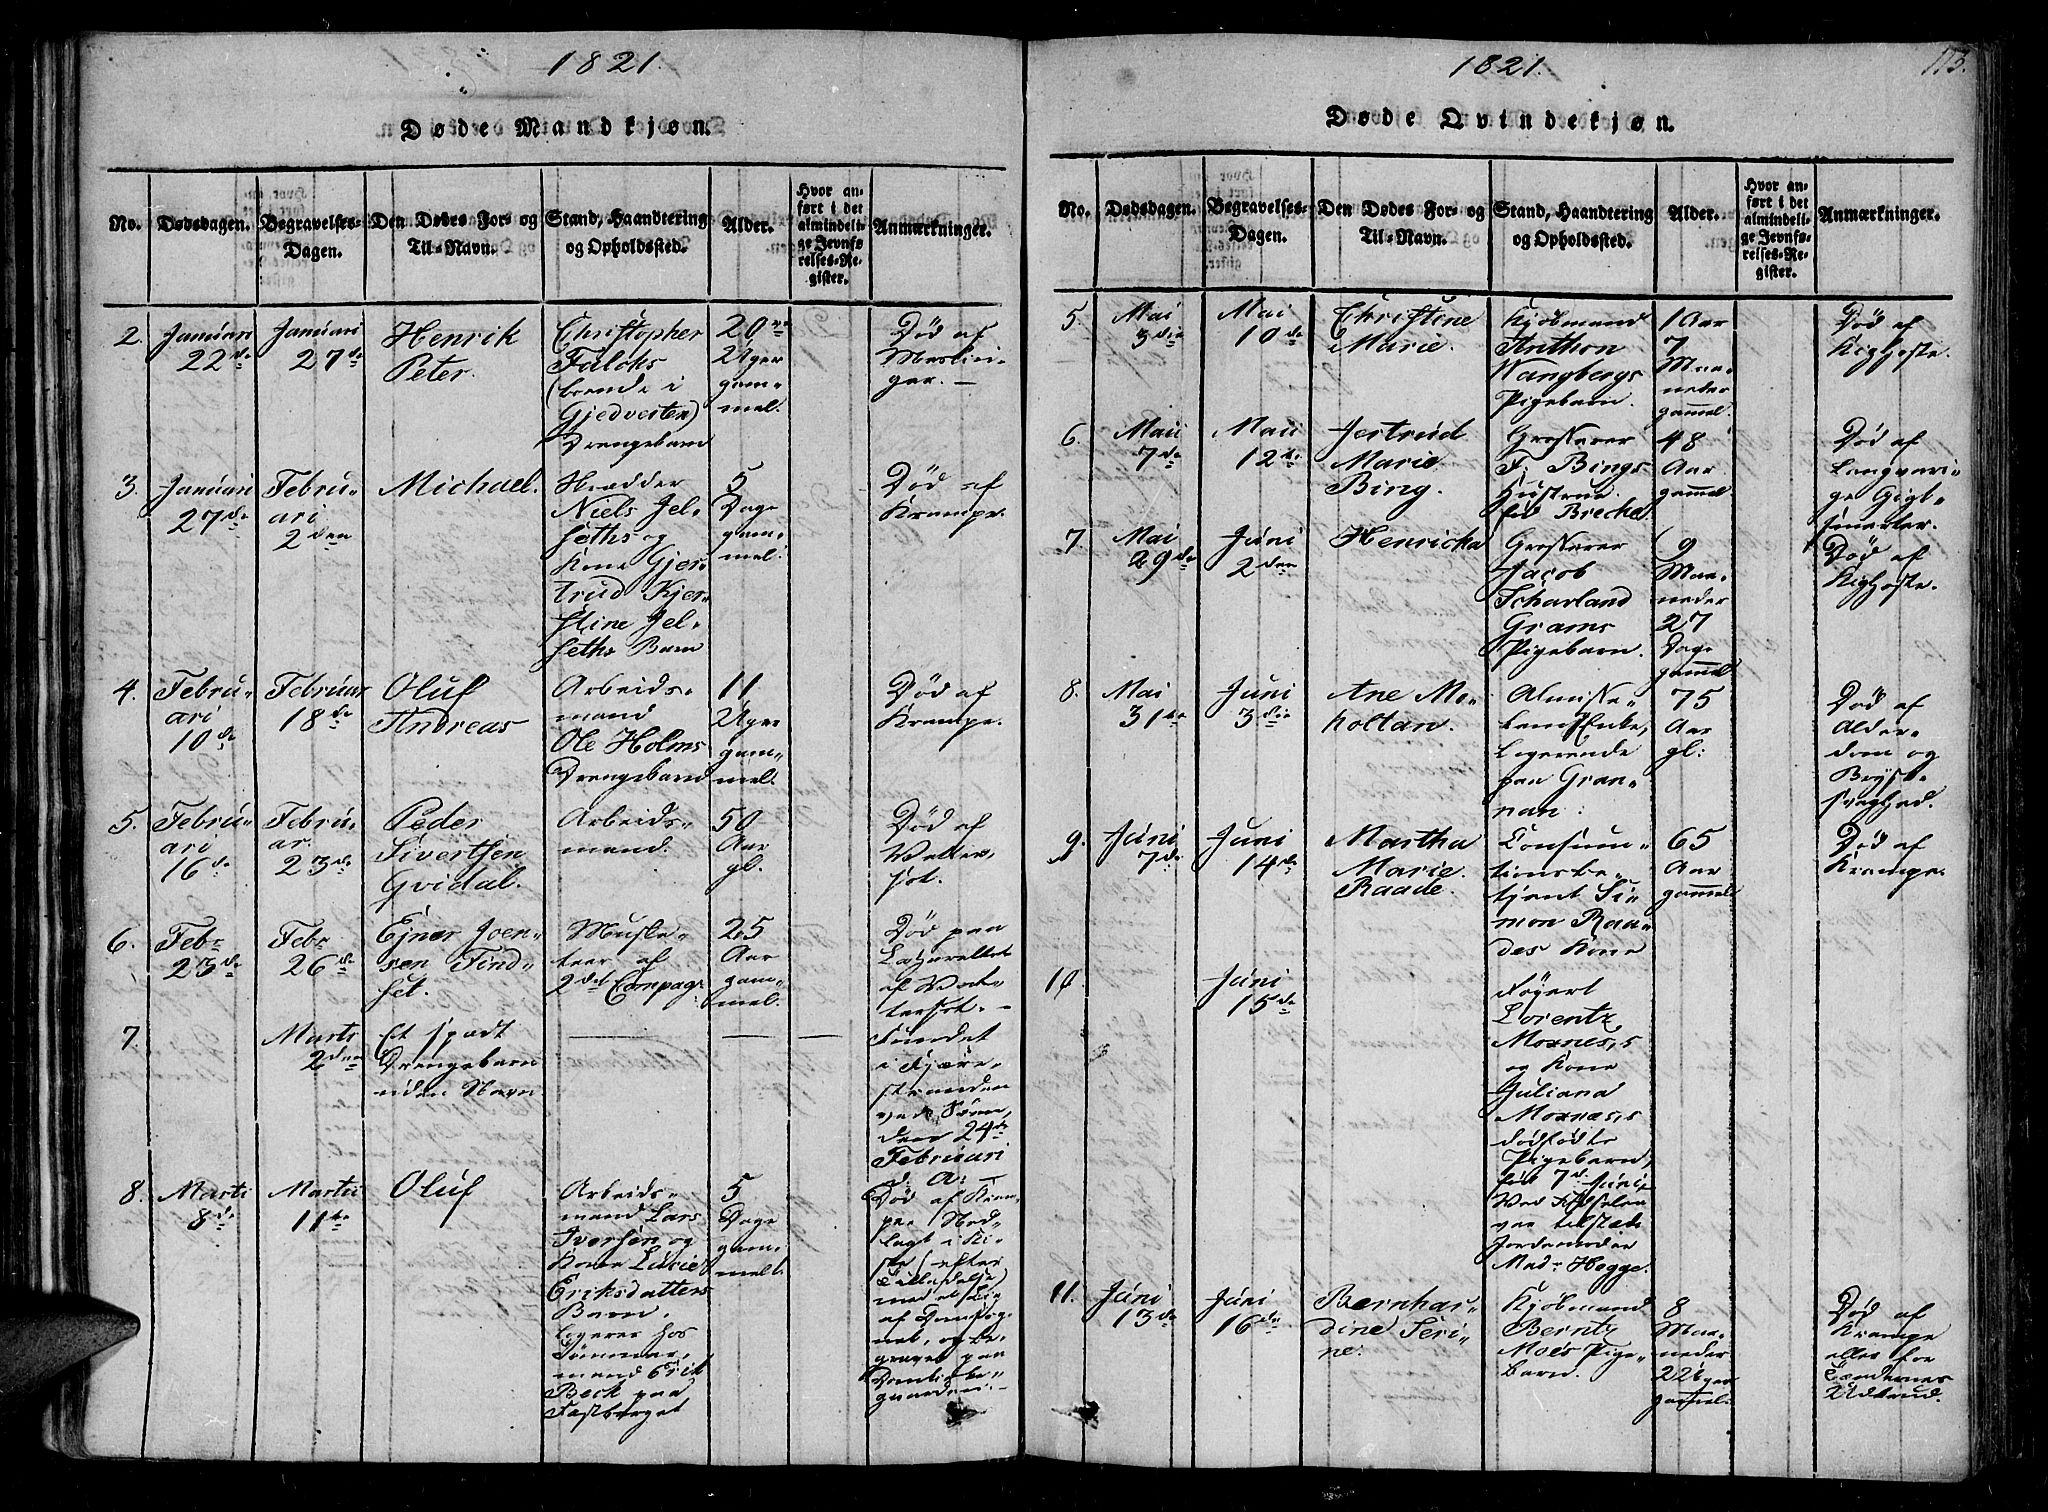 1821.
Døde Mandkjøn.
No.
Dødsdagen.
Begravelses-
Dagen.
Den Dødes For- og
Til-Navn.
Stand, Haandtering
og Opholdssted.
Alder.
Hvor an-
ført i det
almindeli-
ge Jevnfø-
relses-Re-
gister.
Anmærkninger.
2.
Januari
22de
Januari
27de
Henrik
Peter.
Christopher
Falchs
(boende i
Gjedvesten)
Drengebarn
20
Uger
gam-
mel.
Død af
Meslin-
ger. —
3.
Januari
27de
Febru-
ari
2den
Michael.
Niels Jel-
seths og
Kone Gjer-
trud Kjer-
stine Jel-
seths Barn
5
Dage
gam-
mel.
Død af
Krampe.
4.
Febru-
ari
10de
Februar
18de
Oluf
Andreas
Arbeids-
mand
Ole Holms
Drengebarn
11
Uger
gam-
mel.
Død af
Krampe.
5.
Febru-
ari
16de
Febru-
ar.
23de
Peder
Sivertsen
Gvidal.
Arbeids-
mand.
50
Aar
gl.
Død af
Vatter-
sot.
6.
Febr
23de
Febr
26de
Ejner Joen-
sen Tind-
set.
Muske-
teer af
2det Compag:
25
Aar
gam-
mel.
Død paa
Lazarettet
af Vat-
tersot. —
7.
Marti
2den
Et spædt
Drengebarn
uden Navn
Fundet
i Fjære-
stranden
ved Søen,
den 24de
Februari
d. A. —
8.
Marti
8de
Martii
11te
Oluf
Arbeids-
mand Lars
Iversen og
Kone Lucie
Eriksdatters
Barn,
logerer hos
Tømmer-
mand Erik
Beck paa
5
Dage
gam-
mel.
Død af Kram-
pe. Ned-
lagt i Ki-
ste (efter
Tilladelse)
med et Lig
af Domsog-
net, og be-
gravet paa
Domkirke-
gaarden. —
1821.
173.
Døde Qvindekjøn.
No.
Dødsdagen.
Begravelses-
Dagen.
Den Dødes For- og
Til-Navn.
Stand, Haandtering
og Opholdssted.
Alder.
Hvor an-
ført i det
almindeli-
ge Jevnfø-
relses-Re-
gister.
Anmærkninger.
5.
Mai
3die
Mai
10de
Christine
Marie.
Kjøbmand
Anthon
Wangbergs
Pigebarn.
1 Aar
7
Maa-
neder
gammel.
Død af
Kighoste.
6.
Maii
7de
Maii
12te
Jertrud
Marie
Bing.
Grosserer
F. Bings
Hustrue
fød Brechel
48
Aar
gammel
Død af
Langvari-
ge Gigt-
smerter.
7.
Mai
29de
Juni
2den
Henricka
Grosserer
Jacob
Scharland
Grams
Pigebarn.
9
Maa-
neder
27
Dage
gammel
Død af
Kighoste.
8.
Mai
31te
Juni
3die
Ane Mo-
holtan.
Almisse-
lem Enke,
Logerende
paa Gran-
nan:
75
Aar
gl:
Død af
Alder-
dom og
Bryst-
svaghed.
9.
Juni
7de
Juni
14de
Martha
Marie
Raade.
Consum-
tionsbe-
tjent Si-
mon Raa-
des Kone
65
Aar
gammel
Død af
Krampe.
10
Juni
15de
Fogert
Lorentz
Moxnes,s
og Kone
Juliana
Moxnæs,s
dødfødte
Pigebarn,
fød 7de Juni,
Ved Fødselen
var tilstæde
Jordemoder
Mad: Hegge.
11.
Juni
13de
Juni
16de
Bernhar-
dine Seri-
ne.
Kjøbmand
Berntz
Moes Pige-
barn.
8
Maa-
neder
2 Uger
gammel.
Død af
Krampe
eller for
Tændernes
Udbrud.